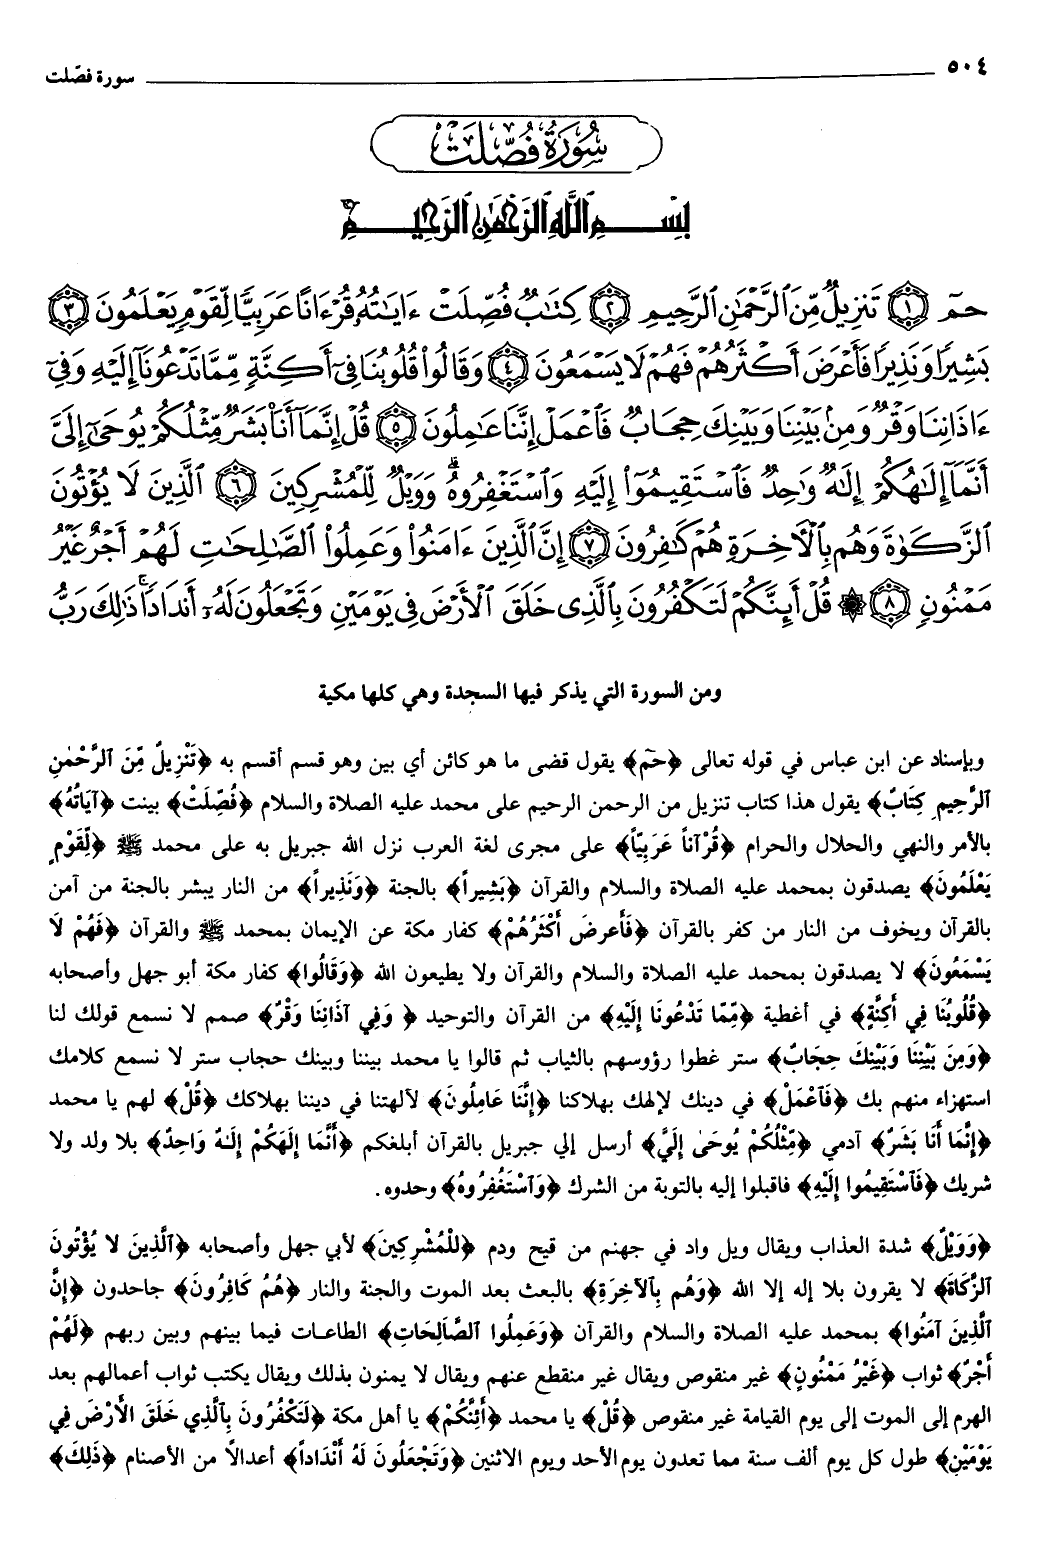 ٥٠٤ سورة فصّلت
سُورَةُ فُصِّلَتْ
بِسْمِ ٱللَّهِ ٱلرَّحْمَٰنِ ٱلرَّحِيمِ
حمٓ ١ تَنزِيلٌ مِّنَ ٱلرَّحْمَٰنِ ٱلرَّحِيمِ ٢ كِتَٰبٌ فُصِّلَتْ ءَايَٰتُهُۥ قُرْءَانًا عَرَبِيًّا لِّقَوْمٍ يَعْلَمُونَ ٣
بَشِيرًا وَنَذِيرًا فَأَعْرَضَ أَكْثَرُهُمْ فَهُمْ لَا يَسْمَعُونَ ٤ وَقَالُوا۟ قُلُوبُنَا فِىٓ أَكِنَّةٍ مِّمَّا تَدْعُونَآ إِلَيْهِ وَفِىٓ
ءَاذَانِنَا وَقْرٌ وَمِنۢ بَيْنِنَا وَبَيْنِكَ حِجَابٌ فَٱعْمَلْ إِنَّنَا عَٰمِلُونَ ٥ قُلْ إِنَّمَآ أَنَا۠ بَشَرٌ مِّثْلُكُمْ يُوحَىٰٓ إِلَىَّ
أَنَّمَآ إِلَٰهُكُمْ إِلَٰهٌ وَٰحِدٌ فَٱسْتَقِيمُوٓا۟ إِلَيْهِ وَٱسْتَغْفِرُوهُ ۗ وَوَيْلٌ لِّلْمُشْرِكِينَ ٦ ٱلَّذِينَ لَا يُؤْتُونَ
ٱلزَّكَوٰةَ وَهُم بِٱلْءَاخِرَةِ هُمْ كَٰفِرُونَ ٧ إِنَّ ٱلَّذِينَ ءَامَنُوا۟ وَعَمِلُوا۟ ٱلصَّٰلِحَٰتِ لَهُمْ أَجْرٌ غَيْرُ
مَمْنُونٍ ٨ ۞ قُلْ أَئِنَّكُمْ لَتَكْفُرُونَ بِٱلَّذِى خَلَقَ ٱلْأَرْضَ فِى يَوْمَيْنِ وَتَجْعَلُونَ لَهُۥٓ أَندَادًا ۚ ذَٰلِكَ رَبُّ
ومن السورة التي يذكر فيها السجدة وهي كلها مكية
وبإسناد عن ابن عباس في قوله تعالى ﴿حَم﴾ يقول قضى ما هو كائن أي بين وهو قسم أقسم به ﴿تَنْزِيلٌ مِّنَ ٱلرَّحْمٰنِ
ٱلرَّحِيمِ كِتَابٌ﴾ يقول هذا كتاب تنزيل من الرحمن الرحيم على محمد عليه الصلاة والسلام ﴿فُصِّلَتْ﴾ بينت ﴿آيَاتُهُ﴾
بالأمر والنهي والحلال والحرام ﴿قُرْآناً عَرَبِيّاً﴾ على مجرى لغة العرب نزل الله جبريل به على محمد ﷺ ﴿لِّقَوْمٍ
يَعْلَمُونَ﴾ يصدقون بمحمد عليه الصلاة والسلام والقرآن ﴿بَشِيراً﴾ بالجنة ﴿وَنَذِيراً﴾ من النار يبشر بالجنة من آمن
بالقرآن ويخوف من النار من كفر بالقرآن ﴿فَأَعرضَ أَكْثَرُهُمْ﴾ كفار مكة عن الإيمان بمحمد ﷺ والقرآن ﴿فَهُمْ لاَ
يَسْمَعُونَ﴾ لا يصدقون بمحمد عليه الصلاة والسلام والقرآن ولا يطيعون الله ﴿وَقَالُوا﴾ كفار مكة أبو جهل وأصحابه
﴿قُلُوبُنَا فِي أَكِنَّةٍ﴾ في أغطية ﴿مِّمَّا تَدْعُونَا إِلَيْهِ﴾ من القرآن والتوحيد ﴿ وَفِي آذَانِنَا وَقْرٌ﴾ صمم لا نسمع قولك لنا
﴿وَمِنْ بَيْنِنَا وَبَيْنِكَ حِجَابٌ﴾ ستر غطوا رؤوسهم بالثياب ثم قالوا يا محمد بيننا وبينك حجاب ستر لا نسمع كلامك
استهزاء منهم بك ﴿فَٱعْمَلْ﴾ في دينك لإلهك بهلاكنا ﴿إِنَّنَا عَامِلُونَ﴾ لآلهتنا في ديننا بهلاكك ﴿قُلْ﴾ لهم يا محمد
﴿إِنَّمَا أَنَا بَشَرٌ﴾ آدمي ﴿مِّثْلُكُمْ يُوحَىٰ إِلَيَّ﴾ أرسل إلي جبريل بالقرآن أبلغكم ﴿أَنَّمَا إِلَهَكُمْ إِلَـهٌ وَاحِدٌ﴾ بلا ولد ولا
شريك ﴿فَٱسْتَقِيمُوا إِلَيْهِ﴾ فاقبلوا إليه بالتوبة من الشرك ﴿وَٱسْتَغْفِرُوهُ﴾ وحدوه.
﴿وَوَيْلٌ﴾ شدة العذاب ويقال ويل واد في جهنم من قيح ودم ﴿لِلْمُشْرِكِينَ﴾ لأبي جهل وأصحابه ﴿ٱلَّذِينَ لا يُؤْتُونَ
ٱلزَّكَاةَ﴾ لا يقرون بلا إله إلا الله ﴿وَهُم بِٱلآخِرَةِ﴾ بالبعث بعد الموت والجنة والنار ﴿هُمْ كَافِرُونَ﴾ جاحدون ﴿إِنَّ
ٱلَّذِينَ آمَنُوا﴾ بمحمد عليه الصلاة والسلام والقرآن ﴿وَعَمِلُوا ٱلصَّالِحَاتِ﴾ الطاعات فيما بينهم وبين ربهم ﴿لَهُمْ
أَجْرٌ﴾ ثواب ﴿غَيْرُ مَمْنُونٍ﴾ غير منقوص ويقال غير منقطع عنهم ويقال لا يمنون بذلك ويقال يكتب ثواب أعمالهم بعد
الهرم إلى الموت إلى يوم القيامة غير منقوص ﴿قُلْ﴾ يا محمد ﴿أَئِنَّكُمْ﴾ يا أهل مكة ﴿لَتَكْفُرُونَ بِٱلَّذِي خَلَقَ الأَرْضَ فِي
يَوْمَيْنِ﴾ طول كل يوم ألف سنة مما تعدون يوم الأحد ويوم الاثنين ﴿وَتَجْعَلُونَ لَهُ أَنْدَاداً﴾ أعدالاً من الأصنام ﴿ذَلِكَ﴾